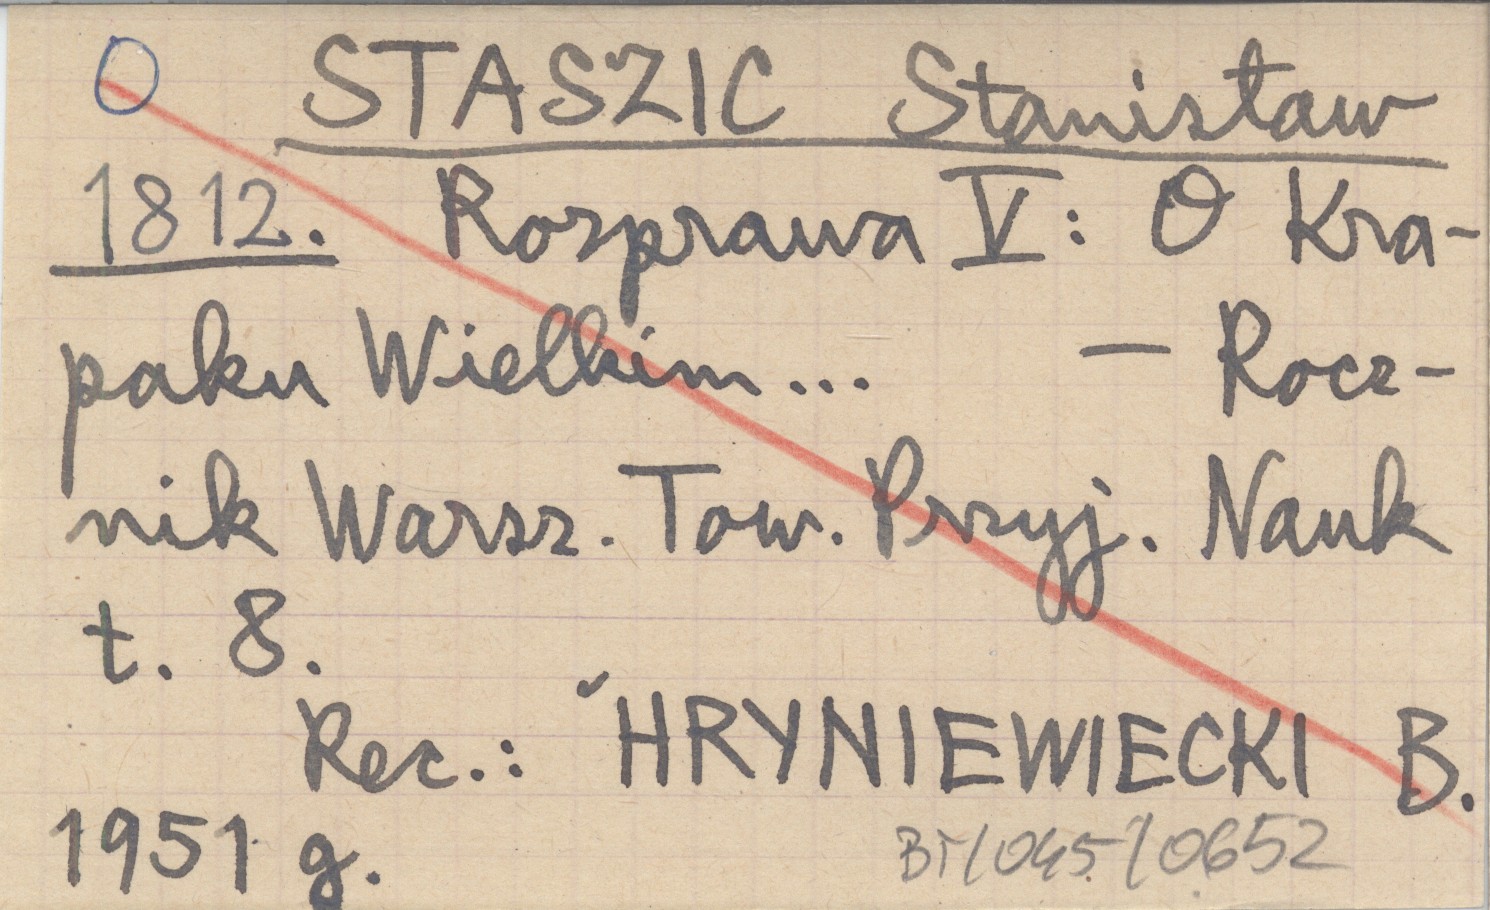 O STASZIC Stanisław
1812. Rozprawa V: O Kra-
paku Wielkim... — Rocz-
nik Warsz. Tow. Przyj. Nauk
t. 8.
Rec.: HRYNIEWIECKI B.
1951 g.
BT/045/0652